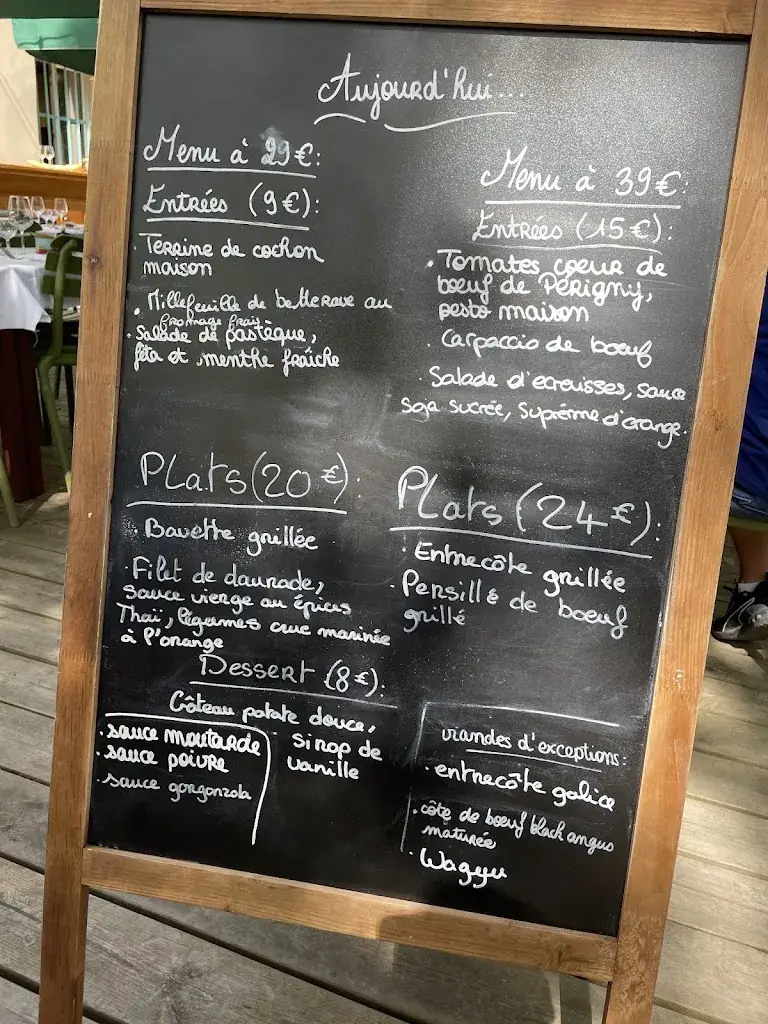 Aujourd'hui...
Menu à 29€:
Entrées (9€):
· Terrine de cochon
maison
· Millefeuille de betterave au
fromage frais
· Salade de pastèque,
féta et menthe fraîche
Menu à 39€:
Entrées (15€):
· Tomates coeur de
boeuf de Périgny,
pesto maison
· Carpaccio de boeuf
· Salade d'ecrevisses, sauce
soja sucrée, Suprême d'orange.
Plats (20€):
· Bavette grillée
· Filet de daurade,
sauce vierge au épices
Thaï, légumes crue marinée
à l'orange
Plats (24€):
· Entrecôte grillée
· Persillé de boeuf
grillé
Dessert (8€):
Gâteau patate douce,
Sirop de
vanille
· sauce moutarde
· sauce poivre
· sauce gorgonzola
viandes d'exceptions:
· entrecôte galice
· côte de boeuf black angus
maturée
· Wagyu